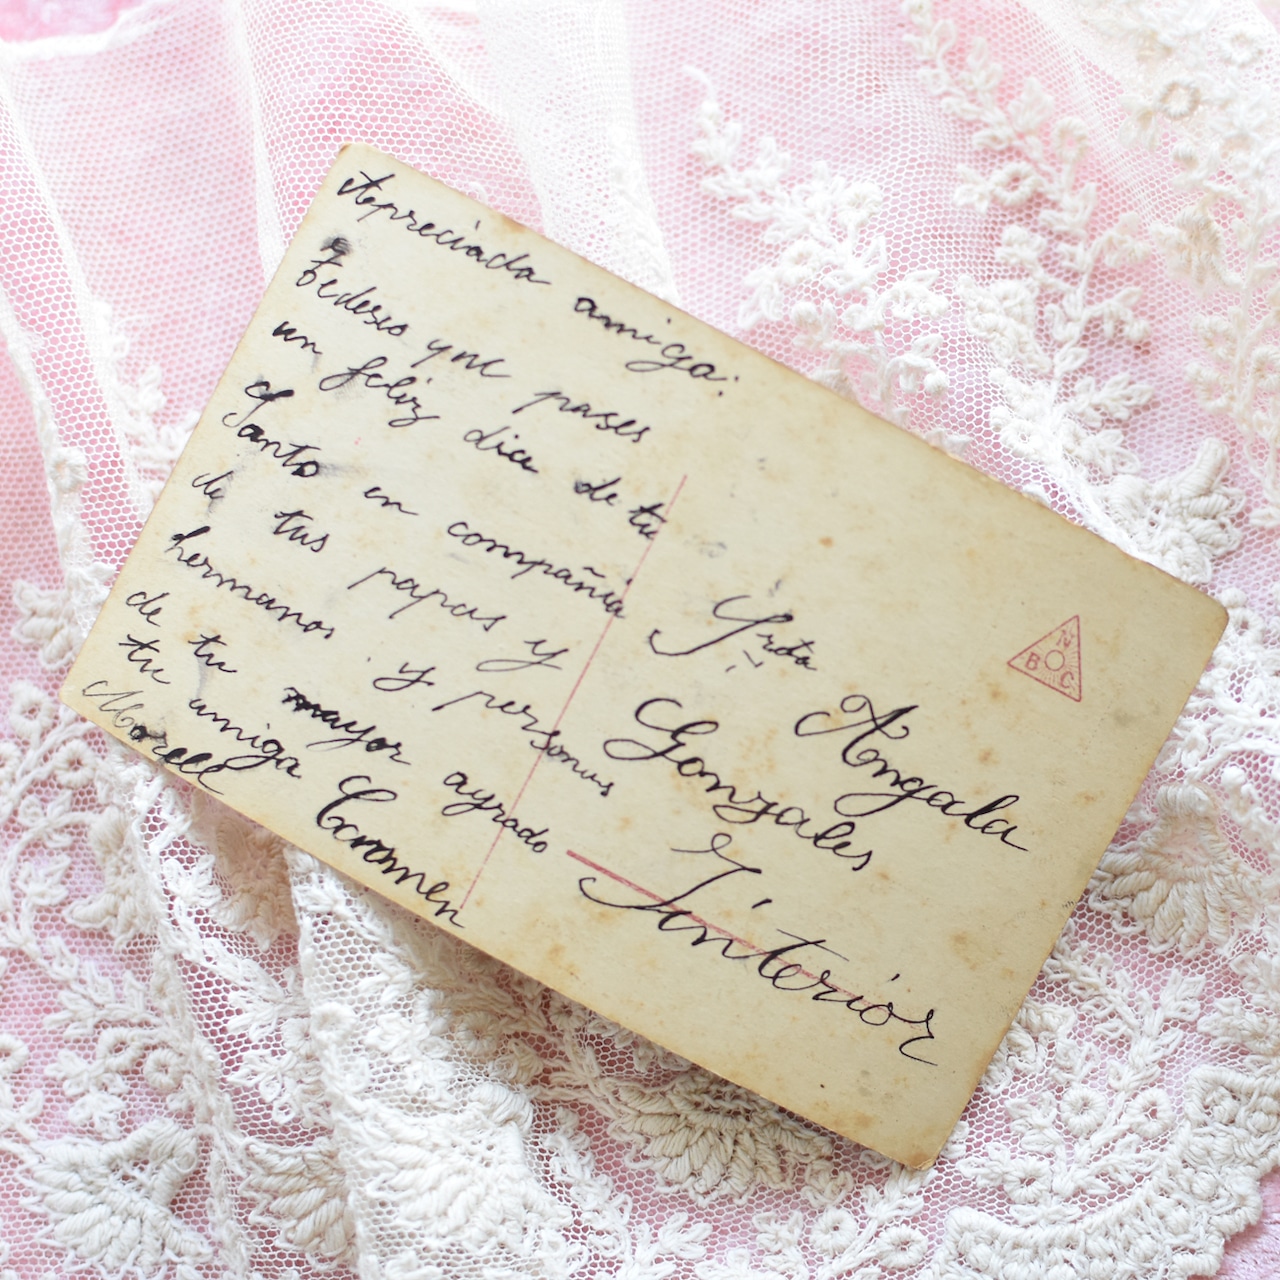 Apreciada amiga:
Tedeseo que pases
un feliz dia de tu
Santo en compañia
de tus papas y
hermanos y personas
de tu mayor agrado
tu amiga Carmen
Morell
Srta
Angala
Gonzales
Interior
N
B C